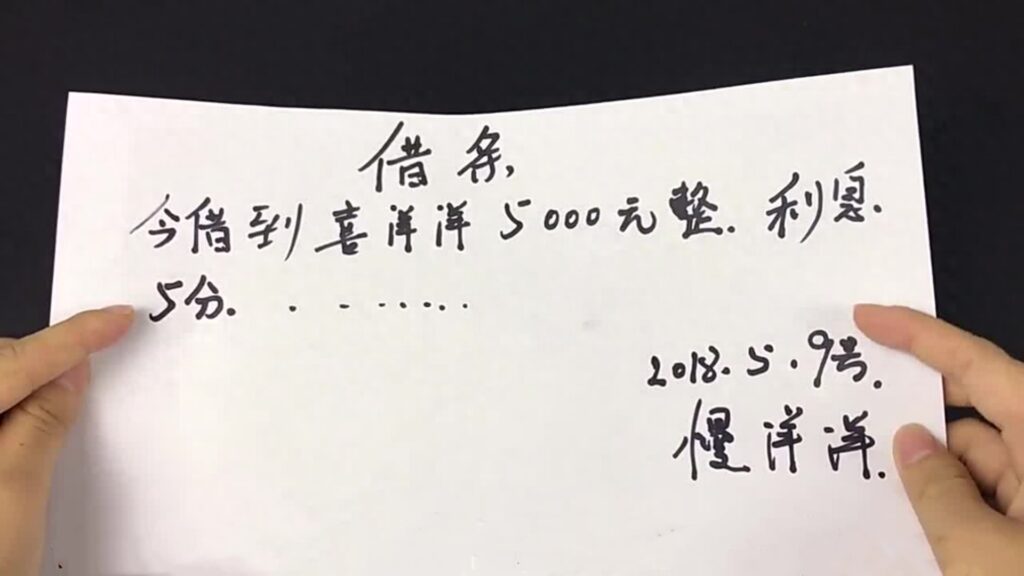 借条,
今借到喜洋洋5000元整.利息.
5分. . . . . . . . .
2018.5.9号.
慢洋洋.